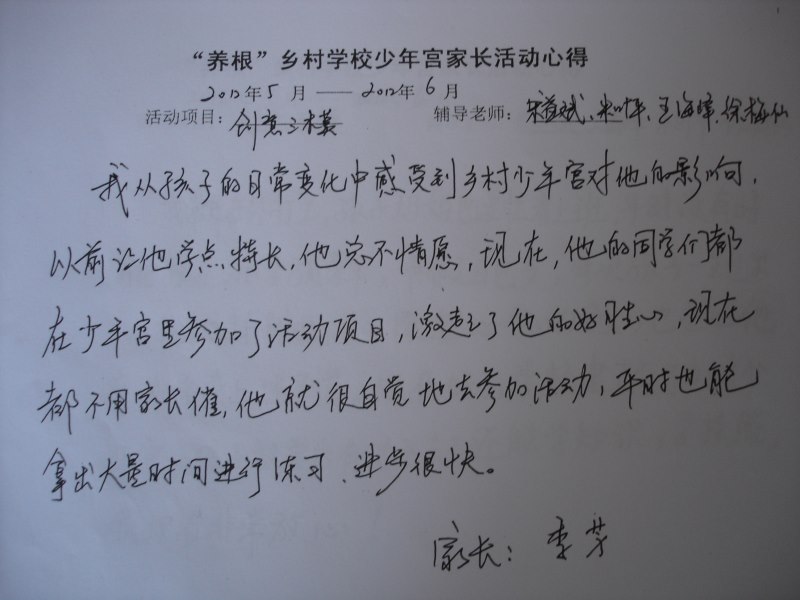 “养根”乡村学校少年宫家长活动心得
2012年5月——2012年6月
活动项目：创意三模 辅导老师：王海峰、徐梅仙
我从孩子的日常变化中感受到乡村少年宫对他的影响，
以前让他学点特长，他总不情愿，现在，他的同学们都
在少年宫里参加了活动项目，激起了他的好胜心，现在
都不用家长催，他就很自觉地去参加活动，平时也能
拿出大量时间进行练习，进步很快。
家长：李芳